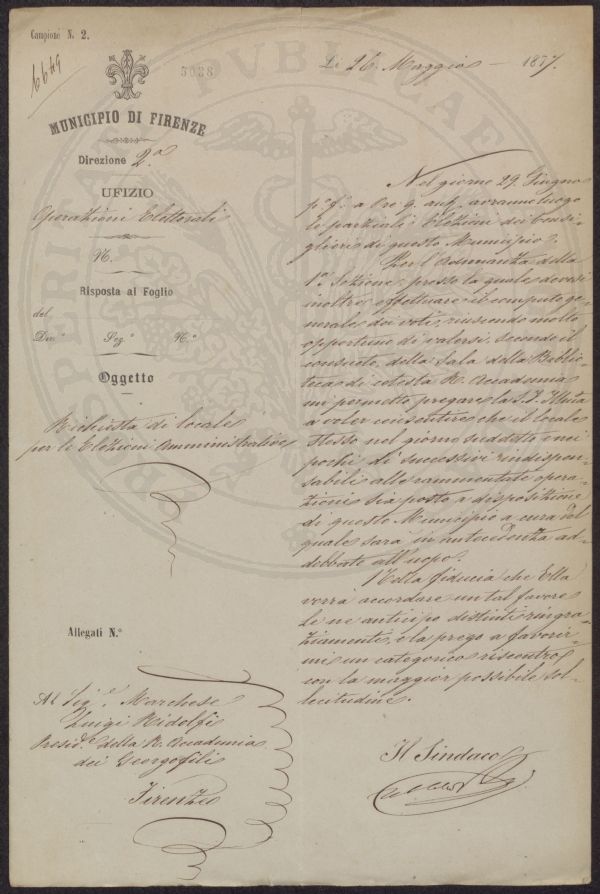 Campione N. 2.
5038
MUNICIPIO DI FIRENZE
Direzione 2ª
UFIZIO
Operazioni Elettorali
N.
Risposta al Foglio
del
Div.e Sez.e N.o
Oggetto
Richiesta di locale
per le Elezioni Amministrative
Allegati N.o
Al Sig.r Marchese
Luigi Ridolfi
Presid.e della R. Accademia
dei Georgofili
Firenze
Li 26 Maggio 1877.
Nel giorno 29. Giugno
p.o f.o a ore 9. ant. avranno luogo
le parziali Elezioni dei Consi-
glieri di questo Municipio.
Per l'Adunanza della
1a Sezione, presso la quale devesi
inoltre effettuare il computo ge-
nerale dei voti, riuscendo molto
opportuno di valersi, secondo il
consueto, della Sala della Biblio-
teca di cotesta R. Accademia
mi permetto pregare la S.V. Illma
a voler consentire che il locale
stesso nel giorno suddetto e nei
pochi dì successivi indispen-
sabili alle rammentate opera-
zioni sia posto a disposizione
di questo Municipio a cura del
quale sarà in antecedenza ad-
debbato all'uopo.
Nella fiducia che Ella
vorrà accordare un tal favore
le ne anticipo distinti ringra-
ziamenti, e la prego a favorir-
mi un categorico riscontro
con la maggior possibile sol-
lecitudine.
Il Sindaco